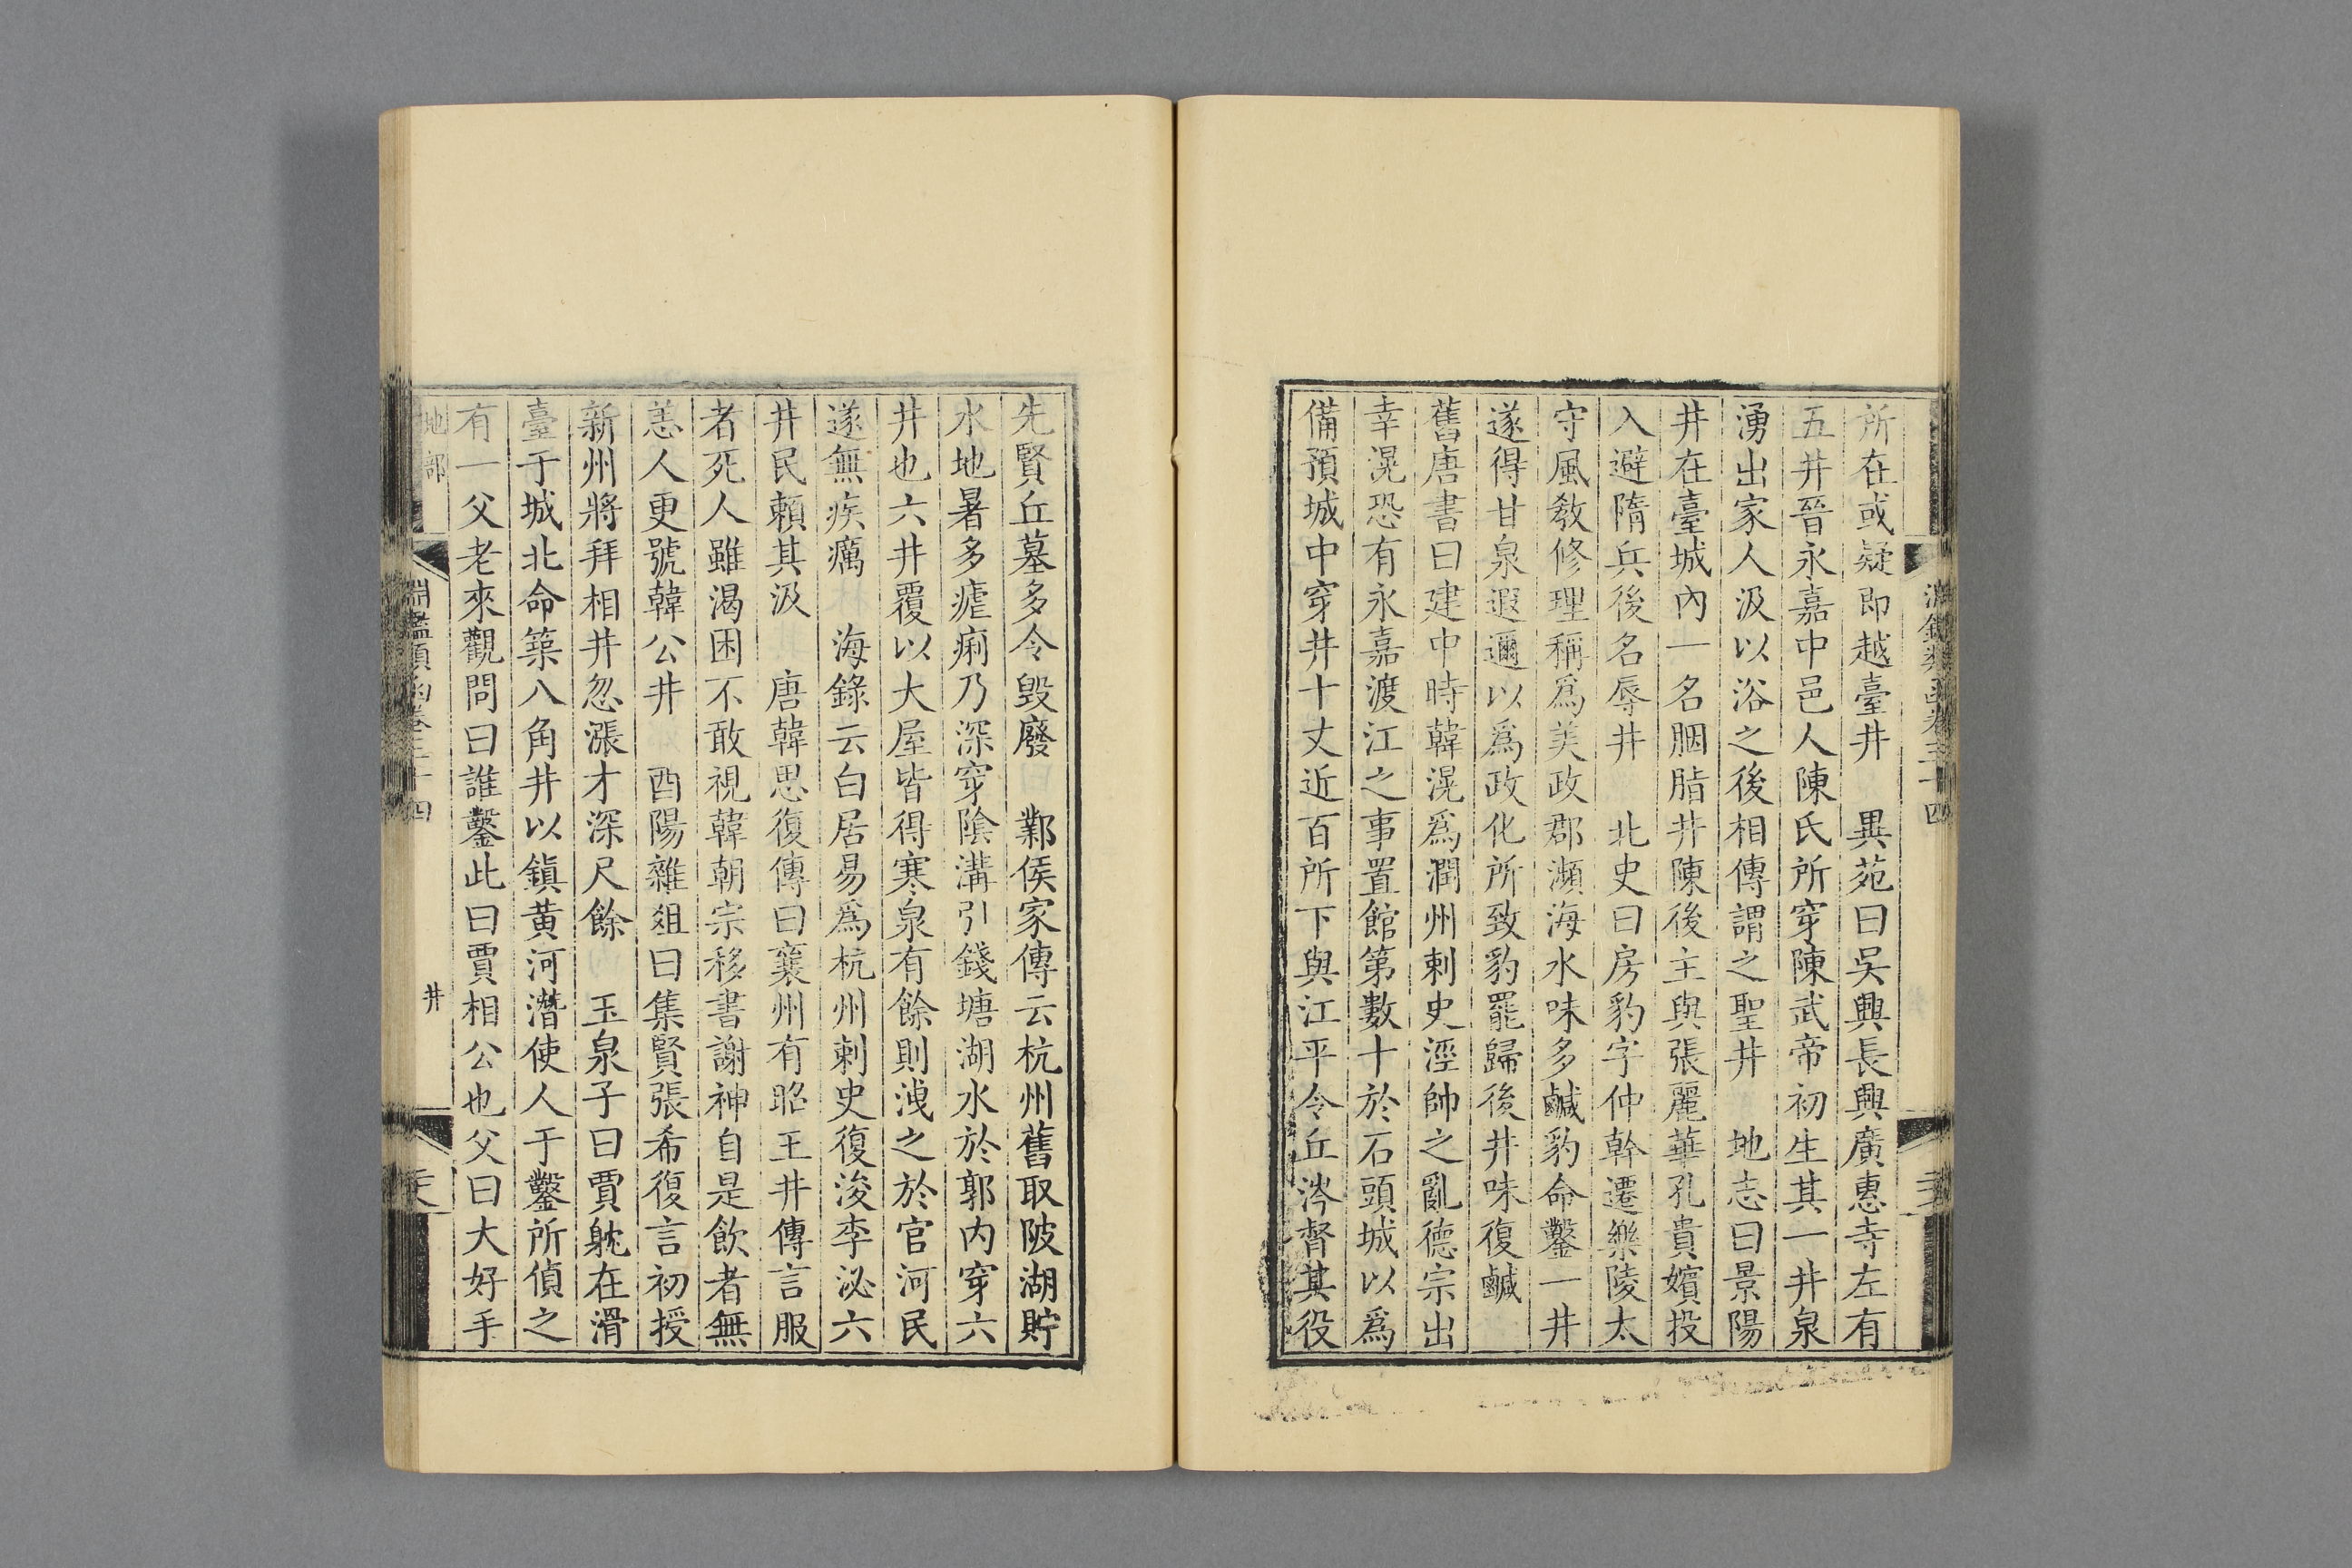 所在或疑即越臺井　異苑曰吳興長興廣惠寺左有
五井晉永嘉中邑人陳氏所穿陳武帝初生其一井泉
湧出家人汲以浴之後相傳謂之聖井　地志曰景陽
井在臺城內一名胭脂井陳後主與張麗華孔貴嬪投
入避隋兵後名辱井　北史曰房豹字仲幹遷樂陵太
守風敎修理稱爲美政郡瀕海水味多鹹豹命鑿一井
遂得甘泉遐邇以爲政化所致豹罷歸後井味復鹹
舊唐書曰建中時韓滉爲潤州刺史涇帥之亂德宗出
幸滉恐有永嘉渡江之事置館第數十於石頭城以爲
備預城中穿井十丈近百所下與江平令丘涔督其役
先賢丘墓多令毀廢　鄴侯家傳云杭州舊取陂湖貯
水地暑多瘧痢乃深穿陰溝引錢塘湖水於郭內穿六
井也六井覆以大屋皆得寒泉有餘則洩之於官河民
遂無疾癘　海錄云白居易爲杭州刺史復浚李泌六
井民賴其汲　唐韓思復傳曰襄州有昭王井傳言服
者死人雖渴困不敢視韓朝宗移書謝神自是飲者無
恙人更號韓公井　酉陽雜俎曰集賢張希復言初授
新州將拜相井忽漲才深尺餘　玉泉子曰賈躭在滑
臺于城北命築八角井以鎭黃河潛使人于鑿所偵之
有一父老來觀問曰誰鑿此曰賈相公也父曰大好手
地部
淵鑑類函卷三十四
井